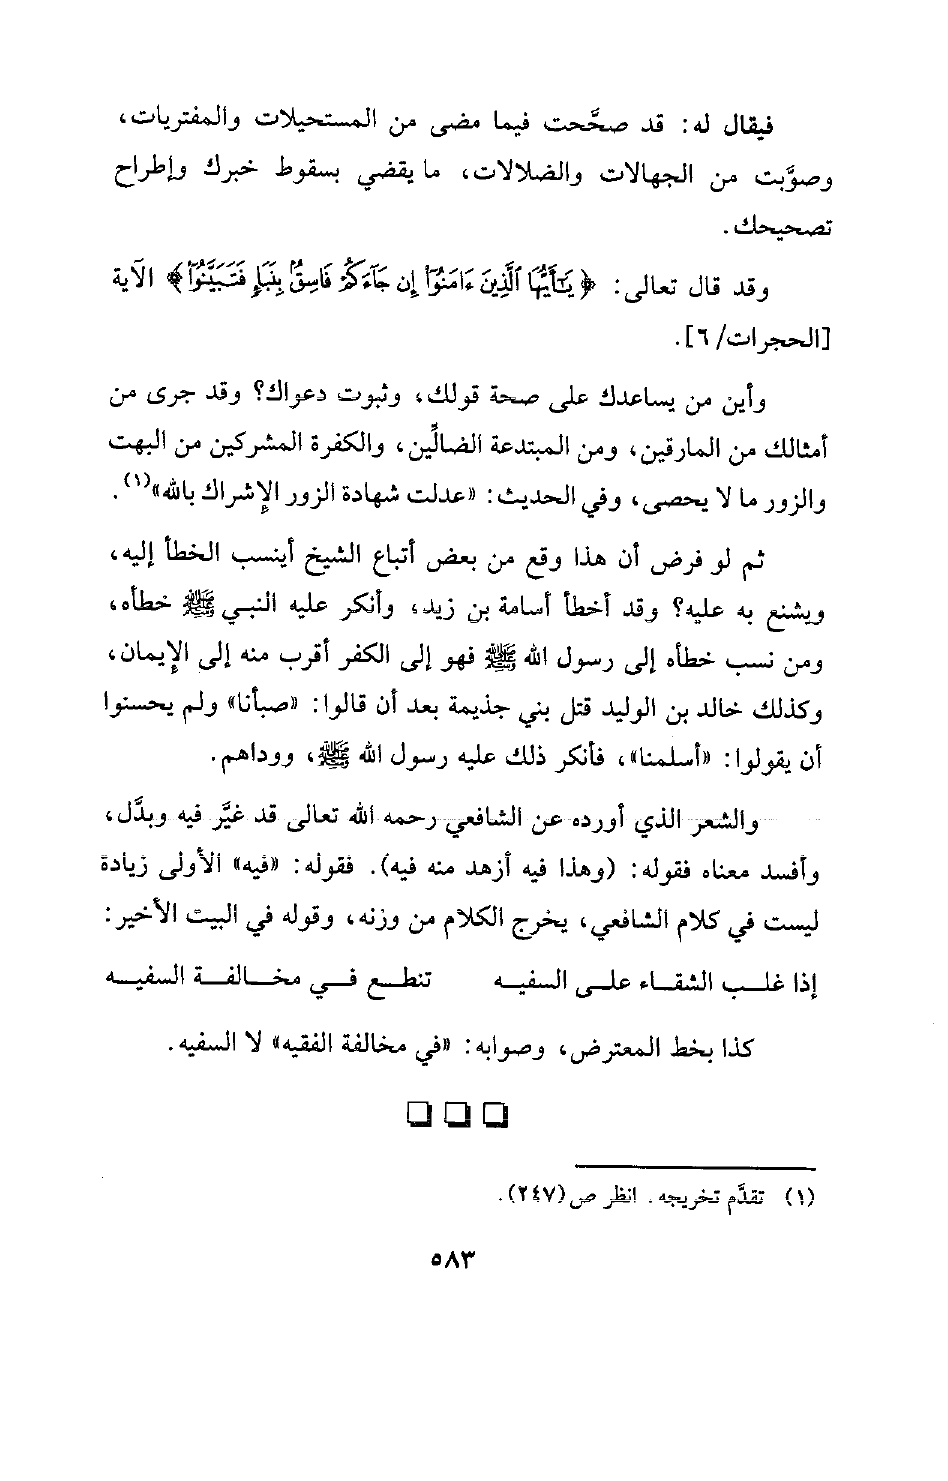 فيقال له: قد صحَّحت فيما مضى من المستحيلات والمفتريات،
وصوَّبت من الجهالات والضلالات، ما يقضي بسقوط خبرك وإطراح
تصحيحك.
وقد قال تعالى: ﴿يَٰٓأَيُّهَا ٱلَّذِينَ ءَامَنُوٓا۟ إِن جَآءَكُمْ فَاسِقٌۢ بِنَبَإٍ فَتَبَيَّنُوٓا۟﴾ الآية
[الحجرات/٦].
وأين من يساعدك على صحة قولك، وثبوت دعواك؟ وقد جرى من
أمثالك من المارقين، ومن المبتدعة الضالِّين، والكفرة المشركين من البهت
والزور ما لا يحصى، وفي الحديث: «عدلت شهادة الزور الإشراك بالله»(١).
ثم لو فرض أن هذا وقع من بعض أتباع الشيخ أينسب الخطأ إليه،
ويشنع به عليه؟ وقد أخطأ أسامة بن زيد، وأنكر عليه النبي ﷺ خطأه،
ومن نسب خطأه إلى رسول الله ﷺ فهو إلى الكفر أقرب منه إلى الإيمان،
وكذلك خالد بن الوليد قتل بني جذيمة بعد أن قالوا: «صبأنا» ولم يحسنوا
أن يقولوا: «أسلمنا»، فأنكر ذلك عليه رسول الله ﷺ، ووداهم.
والشعر الذي أورده عن الشافعي رحمه الله تعالى قد غيَّر فيه وبدَّل،
وأفسد معناه فقوله: (وهذا فيه أزهد منه فيه). فقوله: «فيه» الأولى زيادة
ليست في كلام الشافعي، يخرج الكلام من وزنه، وقوله في البيت الأخير:
إذا غلب الشقاء على السفيه تنطع في مخالفة السفيه
كذا بخط المعترض، وصوابه: «في مخالفة الفقيه» لا السفيه.
(١) تقدَّم تخريجه. انظر ص (٢٤٧).
٥٨٣